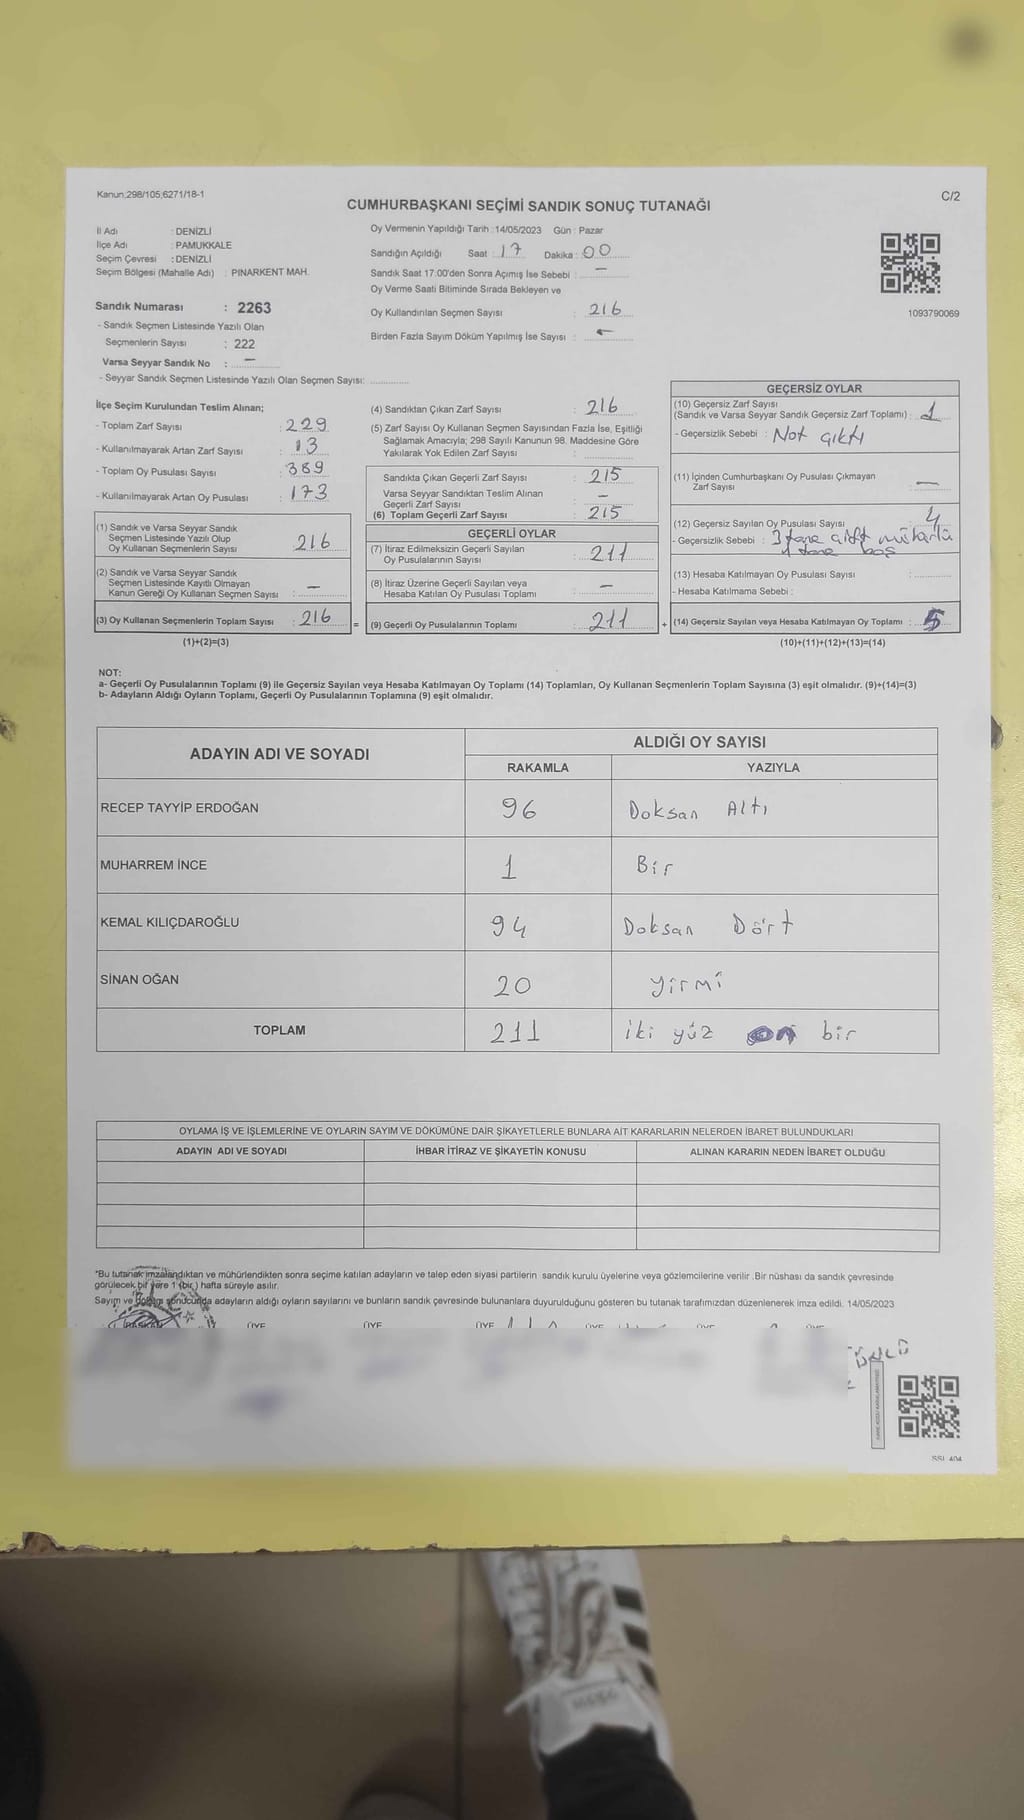 Kanun;298/105;6271/18-1
C/2
CUMHURBAŞKANI SEÇİMİ SANDIK SONUÇ TUTANAĞI
İl Adı : DENİZLİ
İlçe Adı : PAMUKKALE
Seçim Çevresi : DENİZLİ
Seçim Bölgesi (Mahalle Adı) : PINARKENT MAH.
Sandık Numarası : 2263
- Sandık Seçmen Listesinde Yazılı Olan
Seçmenlerin Sayısı : 222
Varsa Seyyar Sandık No : —
- Seyyar Sandık Seçmen Listesinde Yazılı Olan Seçmen Sayısı:
Oy Vermenin Yapıldığı Tarih :14/05/2023 Gün : Pazar
Sandığın Açıldığı Saat : 17 Dakika : 00
Sandık Saat 17:00'den Sonra Açımış İse Sebebi : —
Oy Verme Saati Bitiminde Sırada Bekleyen ve
Oy Kullandırılan Seçmen Sayısı : 216
Birden Fazla Sayım Döküm Yapılmış İse Sayısı : —
1093790069
İlçe Seçim Kurulundan Teslim Alınan;
- Toplam Zarf Sayısı : 229
- Kullanılmayarak Artan Zarf Sayısı : 13
- Toplam Oy Pusulası Sayısı : 389
- Kullanılmayarak Artan Oy Pusulası : 173
(1) Sandık ve Varsa Seyyar Sandık
Seçmen Listesinde Yazılı Olup
Oy Kullanan Seçmenlerin Sayısı : 216
(2) Sandık ve Varsa Seyyar Sandık
Seçmen Listesinde Kayıtlı Olmayan
Kanun Gereği Oy Kullanan Seçmen Sayısı : —
(3) Oy Kullanan Seçmenlerin Toplam Sayısı : 216
(1)+(2)=(3)
(4) Sandıktan Çıkan Zarf Sayısı : 216
(5) Zarf Sayısı Oy Kullanan Seçmen Sayısından Fazla İse, Eşitliği
Sağlamak Amacıyla; 298 Sayılı Kanunun 98. Maddesine Göre
Yakılarak Yok Edilen Zarf Sayısı :
Sandıkta Çıkan Geçerli Zarf Sayısı : 215
Varsa Seyyar Sandıktan Teslim Alınan
Geçerli Zarf Sayısı : —
(6) Toplam Geçerli Zarf Sayısı : 215
GEÇERLİ OYLAR
(7) İtiraz Edilmeksizin Geçerli Sayılan
Oy Pusulalarının Sayısı : 211
(8) İtiraz Üzerine Geçerli Sayılan veya
Hesaba Katılan Oy Pusulası Toplamı : —
= (9) Geçerli Oy Pusulalarının Toplamı : 211
GEÇERSİZ OYLAR
(10) Geçersiz Zarf Sayısı
(Sandık ve Varsa Seyyar Sandık Geçersiz Zarf Toplamı) : 1
- Geçersizlik Sebebi : Not çıktı
(11) İçinden Cumhurbaşkanı Oy Pusulası Çıkmayan
Zarf Sayısı : —
(12) Geçersiz Sayılan Oy Pusulası Sayısı : 4
- Geçersizlik Sebebi : 3 tane çift mühürlü
1 tane boş
(13) Hesaba Katılmayan Oy Pusulası Sayısı :
- Hesaba Katılmama Sebebi :
+ (14) Geçersiz Sayılan veya Hesaba Katılmayan Oy Toplamı : 5
(10)+(11)+(12)+(13)=(14)
NOT:
a- Geçerli Oy Pusulalarının Toplamı (9) ile Geçersiz Sayılan veya Hesaba Katılmayan Oy Toplamı (14) Toplamları, Oy Kullanan Seçmenlerin Toplam Sayısına (3) eşit olmalıdır. (9)+(14)=(3)
b- Adayların Aldığı Oyların Toplamı, Geçerli Oy Pusulalarının Toplamına (9) eşit olmalıdır.
ADAYIN ADI VE SOYADI
ALDIĞI OY SAYISI
RAKAMLA YAZIYLA
RECEP TAYYİP ERDOĞAN 96 Doksan Altı
MUHARREM İNCE 1 Bir
KEMAL KILIÇDAROĞLU 94 Doksan Dört
SİNAN OĞAN 20 Yirmi
TOPLAM 211 iki yüz on bir
OYLAMA İŞ VE İŞLEMLERİNE VE OYLARIN SAYIM VE DÖKÜMÜNE DAİR ŞİKAYETLERLE BUNLARA AİT KARARLARIN NELERDEN İBARET BULUNDUKLARI
ADAYIN ADI VE SOYADI İHBAR İTİRAZ VE ŞİKAYETİN KONUSU ALINAN KARARIN NEDEN İBARET OLDUĞU
*Bu tutanak imzalandıktan ve mühürlendikten sonra seçime katılan adayların ve talep eden siyasi partilerin sandık kurulu üyelerine veya gözlemcilerine verilir .Bir nüshası da sandık çevresinde
görülecek bir yere 1 (bir ) hafta süreyle asılır.
Sayım ve Döküm sonucunda adayların aldığı oyların sayılarını ve bunların sandık çevresinde bulunanlara duyurulduğunu gösteren bu tutanak tarafımızdan düzenlenerek imza edildi. 14/05/2023
BAŞKAN ÜYE ÜYE ÜYE ÜYE ÜYE ÜYE